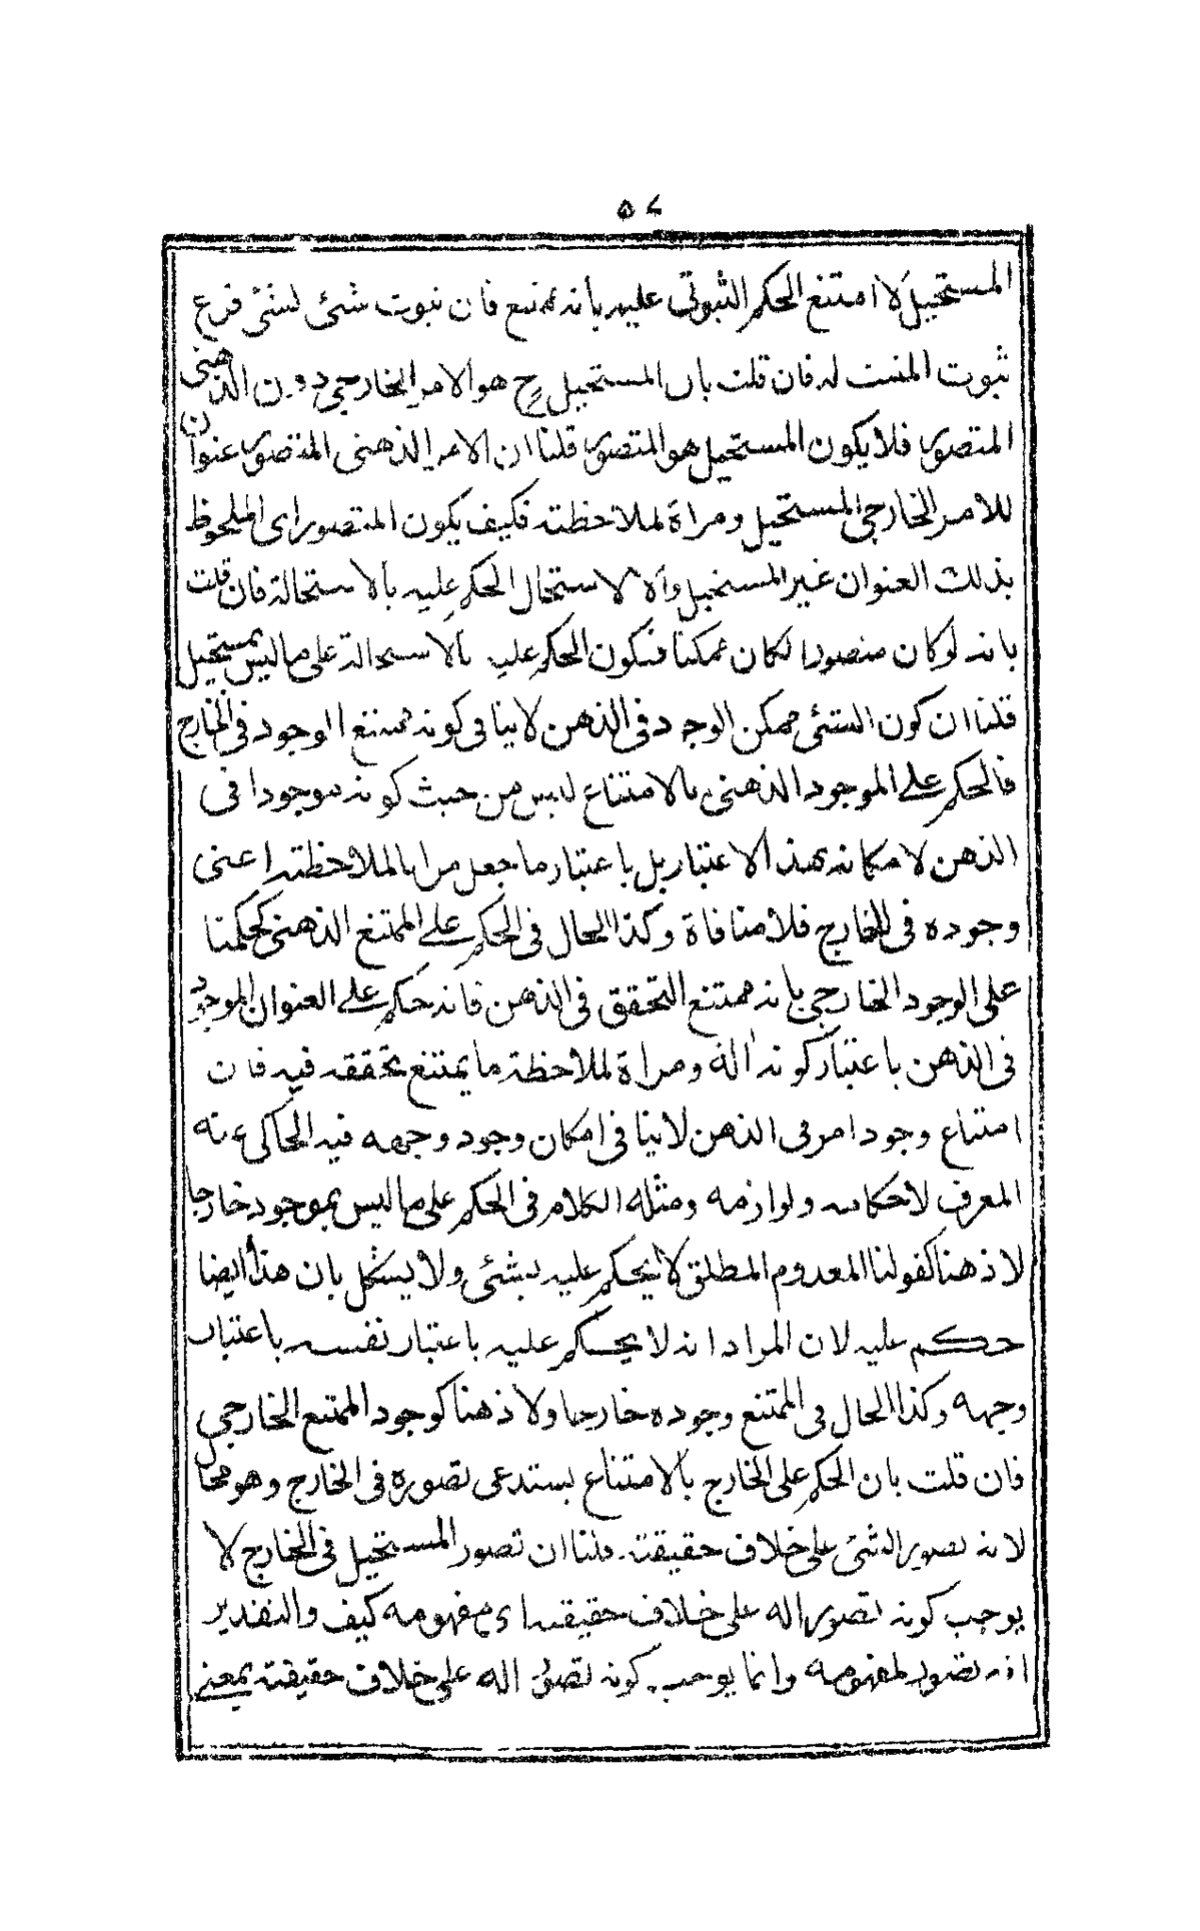 ٥٨
المستحيل لا امتنع الحكم الثبوتي عليه بانه ممتنع فان ثبوت شئ لشئ فرع
ثبوت المثبت له فان قلت بان المستحيل ح هو الامر الخارجي دون الذهني
المتصور فلا يكون المستحيل هو المتصور قلنا ان الامر الذهني المتصور عنوان
للامر الخارجي المستحيل ومراة لملاحظته فكيف يكون المتصور اى الملحوظ
بذلك العنوان غير المستحيل والا لاستحال الحكم عليه بالاستحالة فان قلت
بانه لو كان متصورا لكان ممكنا فيكون الحكم عليه بالاستحالة على ما ليس بمستحيل
قلنا ان كون الشئ ممكن الوجود في الذهن لا ينافي كونه ممتنع الوجود في الخارج
فالحكم على الموجود الذهني بالامتناع ليس من حيث كونه موجودا في
الذهن لامكانه بهذا الاعتبار بل باعتبار ما جعل مرايا لملاحظته اعنى
وجوده في الخارج فلا منافاة وكذا الحال في الحكم على الممتنع الذهني كحكمنا
على الوجود الخارجي بانه ممتنع التحقق في الذهن فانه حكم على العنوان الموجود
في الذهن باعتبار كونه الة ومراة لملاحظة ما يمتنع تحققه فيه فان
امتناع وجود امر في الذهن لا ينافي امكان وجود وجهه فيه الحاكي عنه
المعرف لاحكامه ولوازمه ومثله الكلام في الحكم على ما ليس بموجود خارجا
لا ذهنا كقولنا المعدوم المطلق لا يحكم عليه بشئ ولا يشكل بان هذا ايضا
حكم عليه لان المراد انه لا يحكم عليه باعتبار نفسه باعتبار
وجهه وكذا الحال في الممتنع وجوده خارجا ولا ذهنا كوجود الممتنع الخارجي
فان قلت بان الحكم على الخارج بالامتناع يستدعى تصوره في الخارج وهو محال
لانه تصوير الشئ على خلاف حقيقته قلنا ان تصور المستحيل في الخارج لا
يوجب كونه تصورا له على خلاف حقيقته اى مفهومه كيف والتقدير
انه تصور لمفهومه وانما يوجب كونه تصورا له على خلاف حقيقته بمعنى